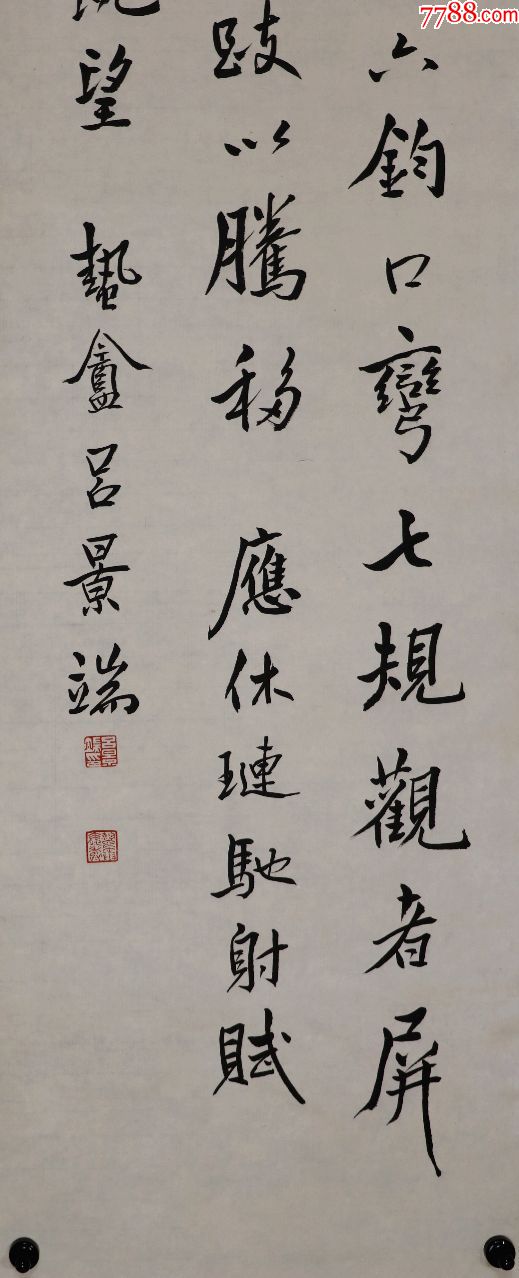 7788.com
六鈞口彎七規觀者屏
跂以騰移 應休璉馳射賦
望 蟄盦呂景端